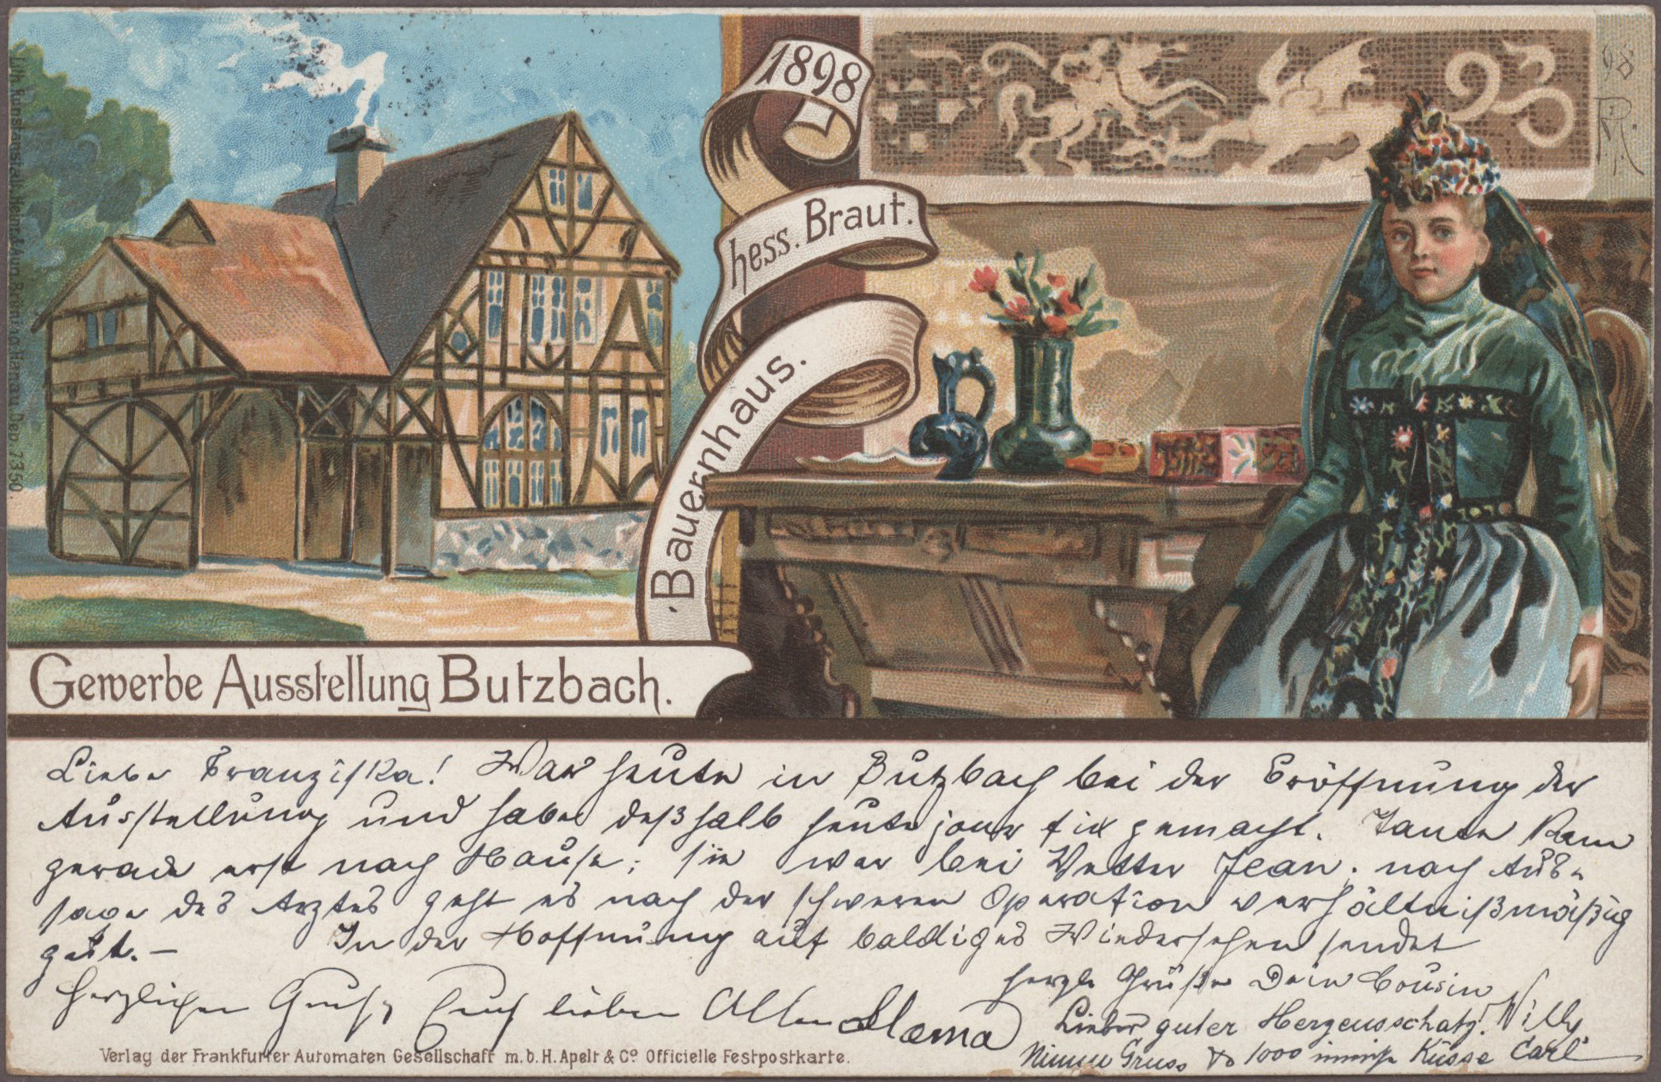 1898
hess. Braut.
Bauernhaus.
98
Gewerbe Ausstellung Butzbach.
Liebe Franziska! War heute in Butzbach bei der Eröffnung der
Ausstellung und habe deßhalb heute jour fix gemacht. Tante kam
gerade erst nach Hause; sie war bei Vetter Jean. nach Aus-
sage des Arztes geht es nach der schweren Operation verhältnißmäßig
gut. — In der Hoffnung auf baldiges Wiedersehen sendet
herzl. Grüße Dein Cousin
Willy.
Herzlichen Gruß Euch lieben Allen Mama
Lieber guter Herzensschatz!
Nimm Gruss & 1000 innige Küsse Carl
Verlag der Frankfurter Automaten Gesellschaft m.b.H. Apelt & Co Officielle Festpostkarte.